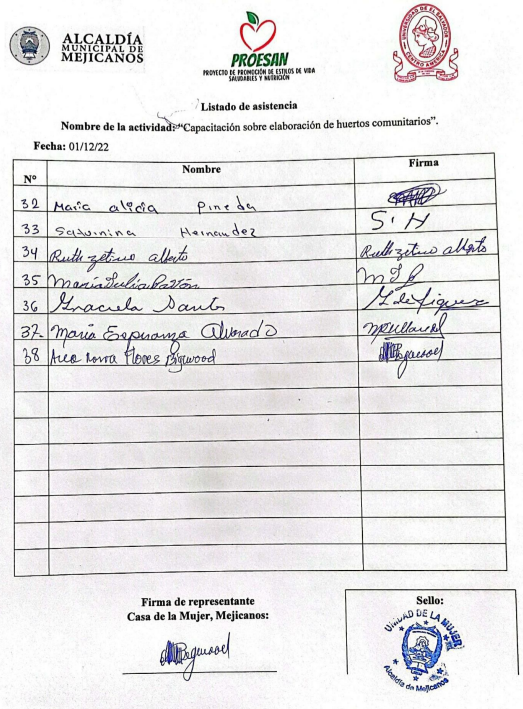 ALCALDÍA
MUNICIPAL DE
MEJICANOS
PROESAN
PROYECTO DE PROMOCIÓN DE ESTILOS DE VIDA
SALUDABLES Y NUTRICIÓN
UNIVERSIDAD DE EL SALVADOR
CENTRO AMERICA
Listado de asistencia
Nombre de la actividad: "Capacitación sobre elaboración de huertos comunitarios".
Fecha: 01/12/22
Nº Nombre Firma
32 Maria alicia Pineda
33 Hernandez S.H
34 Ruth zetino alberto Ruth zetino alberto
35 María Julia
36 Graciela Santos
37. María Esperanza Alvarado
38 Flores
Firma de representante
Casa de la Mujer, Mejicanos:
Sello:
UNIDAD DE LA MUJER
Alcaldía de Mejicanos